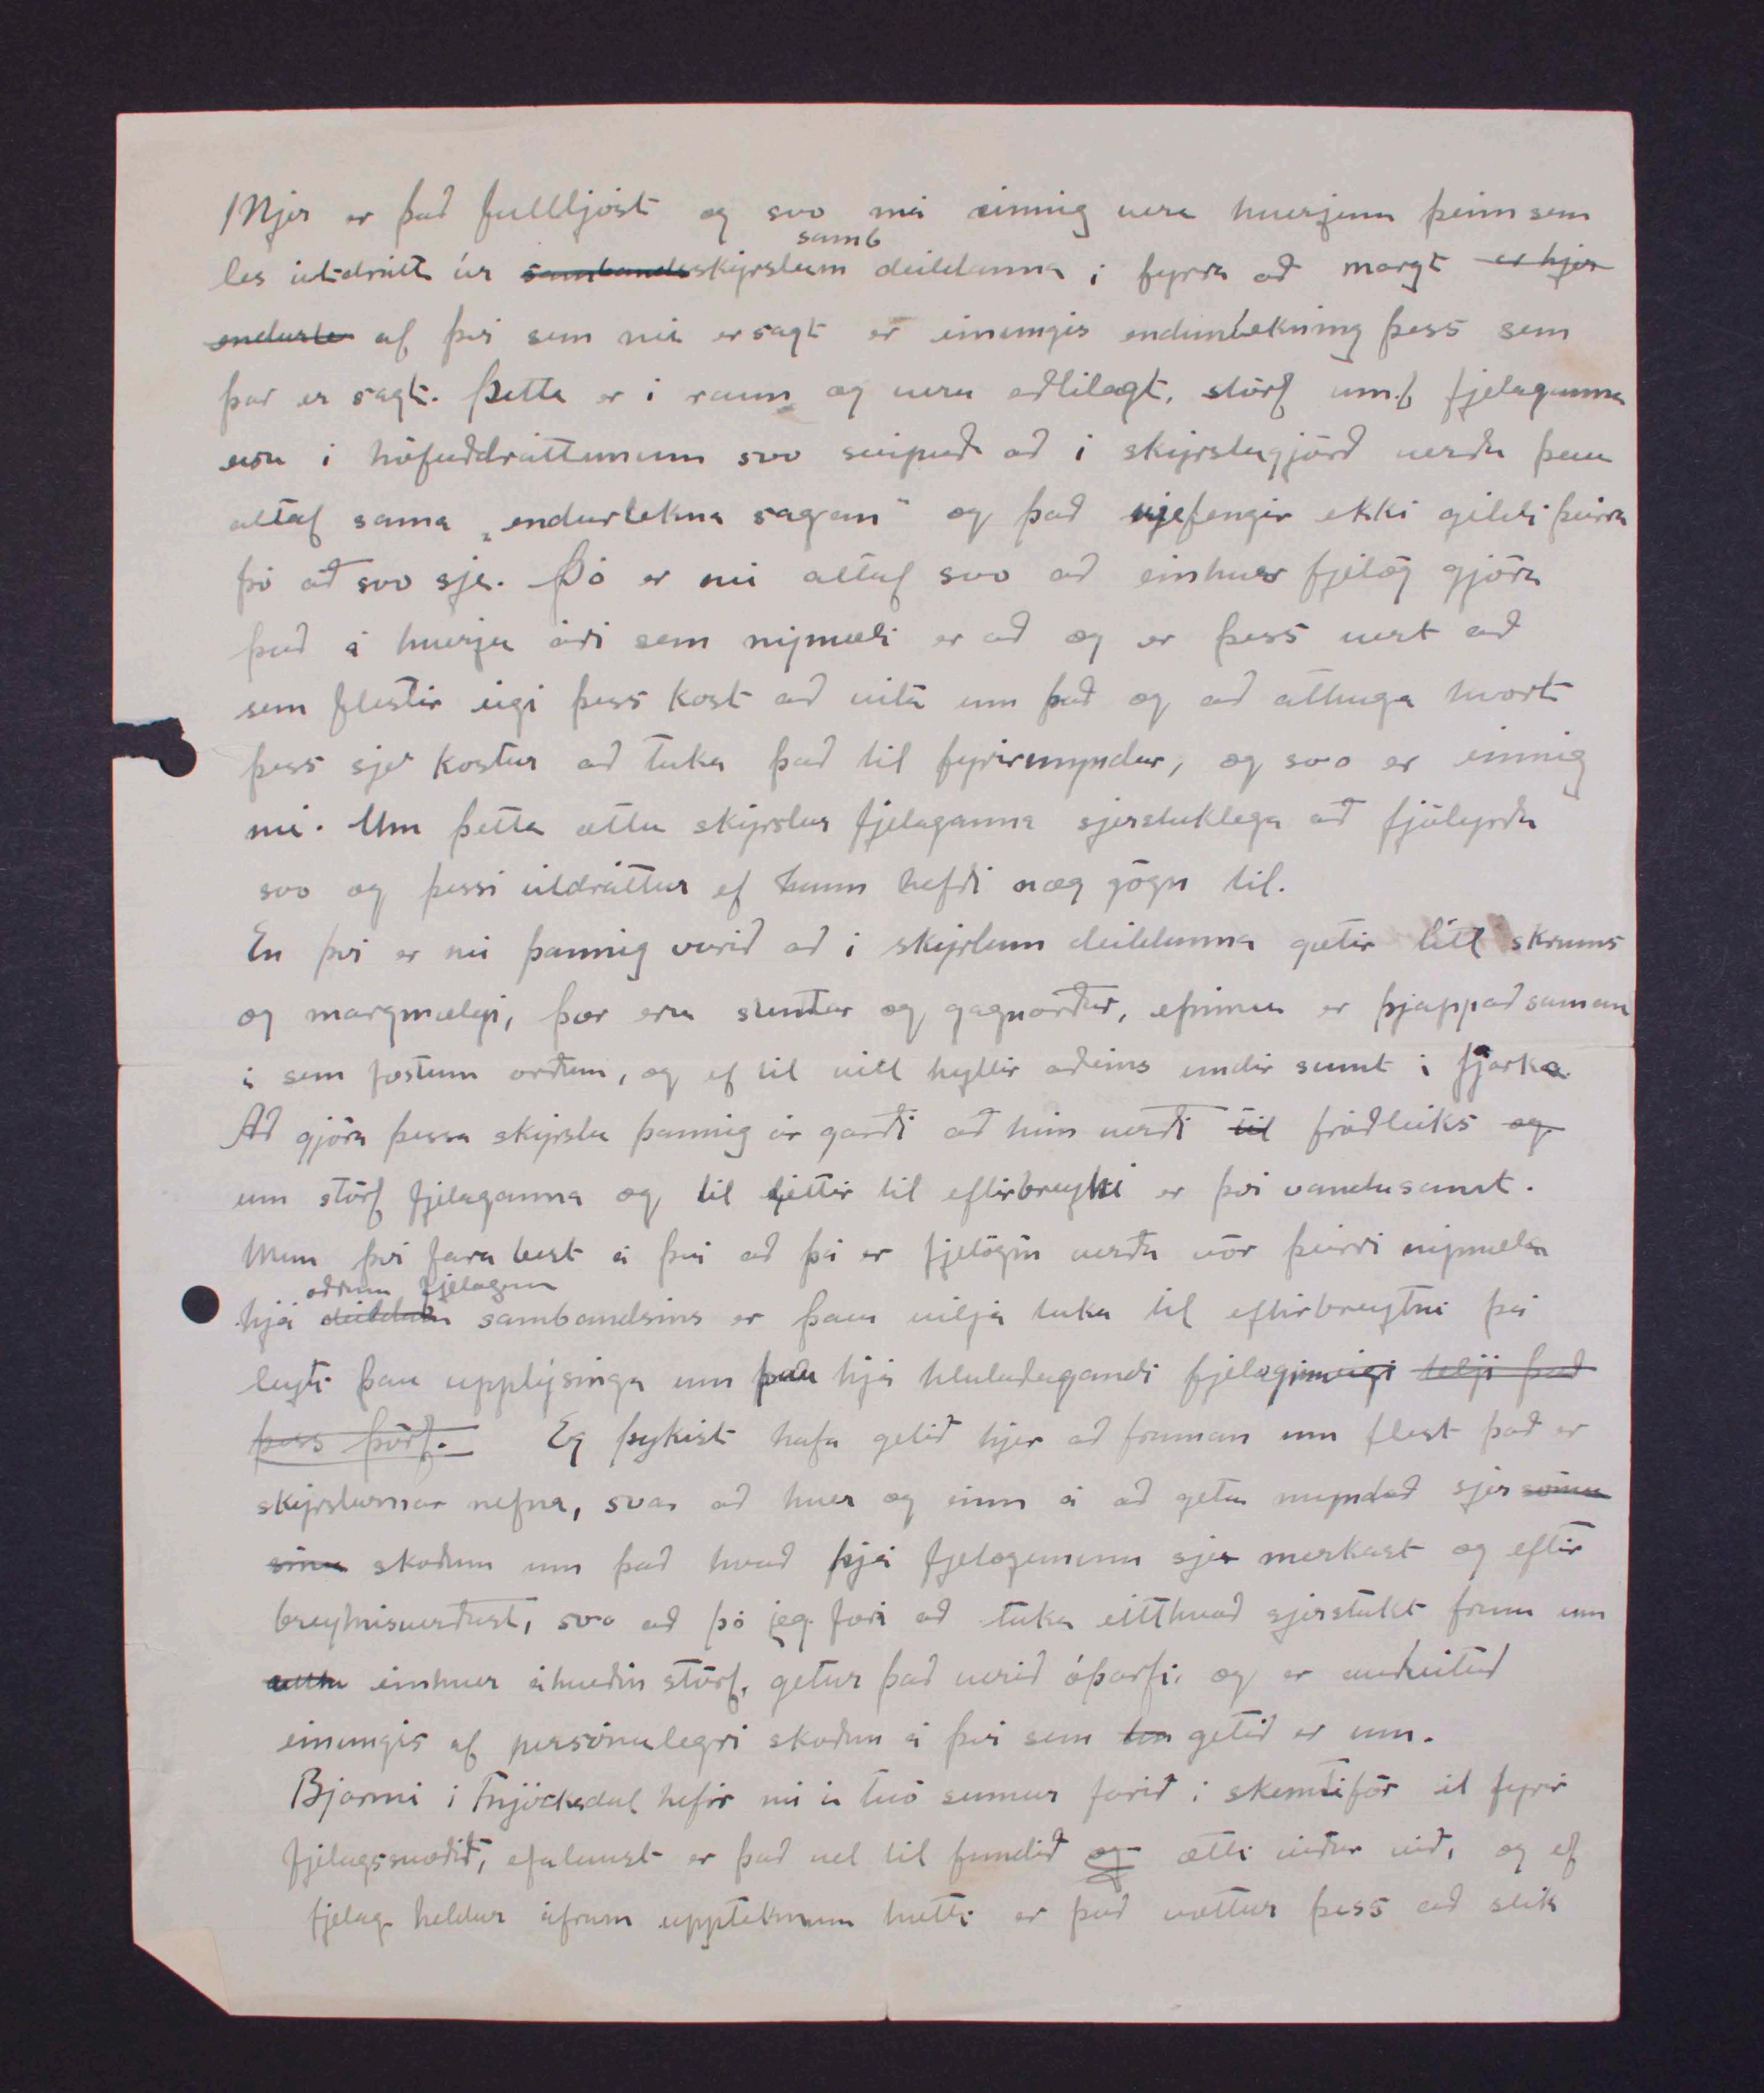 Mjer er það fullljóst og svo má einnig vera hverjum þeim sem
samb
les útdrátt úr sambandsskýrslum deildanna í fyrra að margt er hjer
endurte af því sem nú er sagt er einungis endurtekning þess sem
þar er sagt. Þetta er í raun og veru eðlilegt, störf um.f. fjelaganna
eru í höfuðdráttunum svo svipuð að í skýrslugjörð verða þau
altaf sama „endurtekna sagan" og það vjefengir ekki gildi þeirra
þó að svo sje. Þó er nú altaf svo að einhver fjelög gjöra
það á hverju ári sem nýmæli er að og er þess vert að
sem flestir eigi þess kost að vita um það og að athuga hvort
þess sje kostur að taka það til fyrirmyndar, og svo er einnig
nú. Um þetta ættu skýrslur fjelaganna sjerstaklega að fjölyrða
svo og þessi útdráttur ef hann hefði næg gögn til.
En því er nú þannig varið að í skýrlum deildanna gætir lítt skrums
og margmælgi, þær eru stuttar og gagnorðar, efninu er þjappað saman
í sem fæstum orðum, og ef til vill hyllir aðeins undir sumt í fjarka.
Að gjöra þessa skýrslu þannig úr garði að hún verði til fróðleiks og
um störf fjelaganna og til hjettir til eftirbreytni er því vandasamt.
Mun því fara best á því að þá er fjelögin verða vör þeirri nýmæla
öðrum fjelögum
hjá deildum sambandsins er þau vilja taka til eftirbreytni þá
leyti þau upplýsinga um þau hjá hlutaðegandi fjelagi telji það
þess þörf. Eg þykist hafa getið hjer að framan um flest það er
skýrslurnar nefna, svo að hver og einn á að geta myndað sjer
sína skoðun um það hvað hjá fjelögunum sje merkast og eftir
breytnisverðast, svo að þó jeg færi að taka eitthvað sjerstakt fram um
einhver ákveðin störf, getur það verið óþarfi, og er auðvitað
einungis af persónulegri skoðun á því sem getið er um.
Bjarmi í Fnjóskadal hefir nú í tvö sumur farið í skemtiför út fyrir
fjelagssvæðið, efalaust er það vel til fundið og ætti víðar við, og ef
fjelag heldur áfram uppteknum hætti er það vottur þess að slík